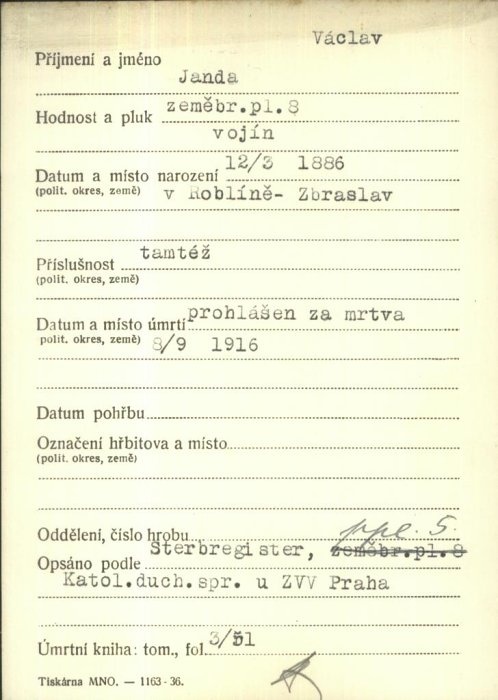 Václav
Příjmení a jméno
Janda
Hodnost a pluk zeměbr.pl.8
vojín
Datum a místo narození 12/3 1886
(polit. okres, země) v Roblíně- Zbraslav
Příslušnost tamtéž
(polit. okres, země)
Datum a místo úmrtí prohlášen za mrtva
polit. okres, země) 8/9 1916
Datum pohřbu
Označení hřbitova a místo
(polit. okres, země)
Oddělení, číslo hrobu ppl. 5.
Opsáno podle Sterbregister, zeměbr.pl.8
Katol.duch.spr. u ZVV Praha
Úmrtní kniha: tom., fol. 3/51
Tiskárna MNO. — 1163-36.